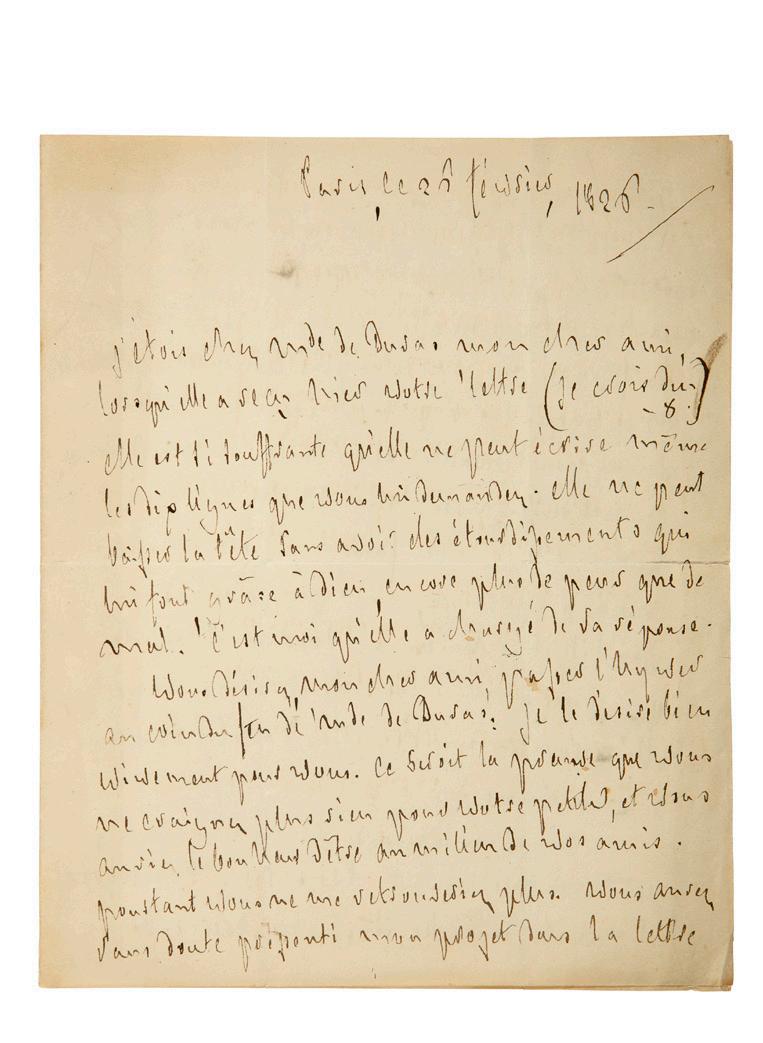 Paris, ce 26 février, 1826.
J'étois chez Mde de Duras mon cher ami,
lorsqu'elle a reçu hier votre lettre (je crois du
8.)
elle est si souffrante qu'elle ne peut écrire même
les dix lignes que vous lui demandez. elle ne peut
baisser la tête sans avoir des étourdissements qui
lui font grâce à Dieu, encore plus de peur que de
mal. C'est moi qu'elle a chargé de sa réponse.
Vous désirez, mon cher ami, passer l'hyver
au coin du feu de Mde de Duras. Je le désire bien
vivement pour vous. Ce seroit la preuve que vous
ne craignez plus rien pour votre et vous
auriez le bonheur d'être au milieu de vos amis.
pourtant vous ne me retrouveriez plus. Vous aurez
sans doute pressenti mon projet dans la lettre